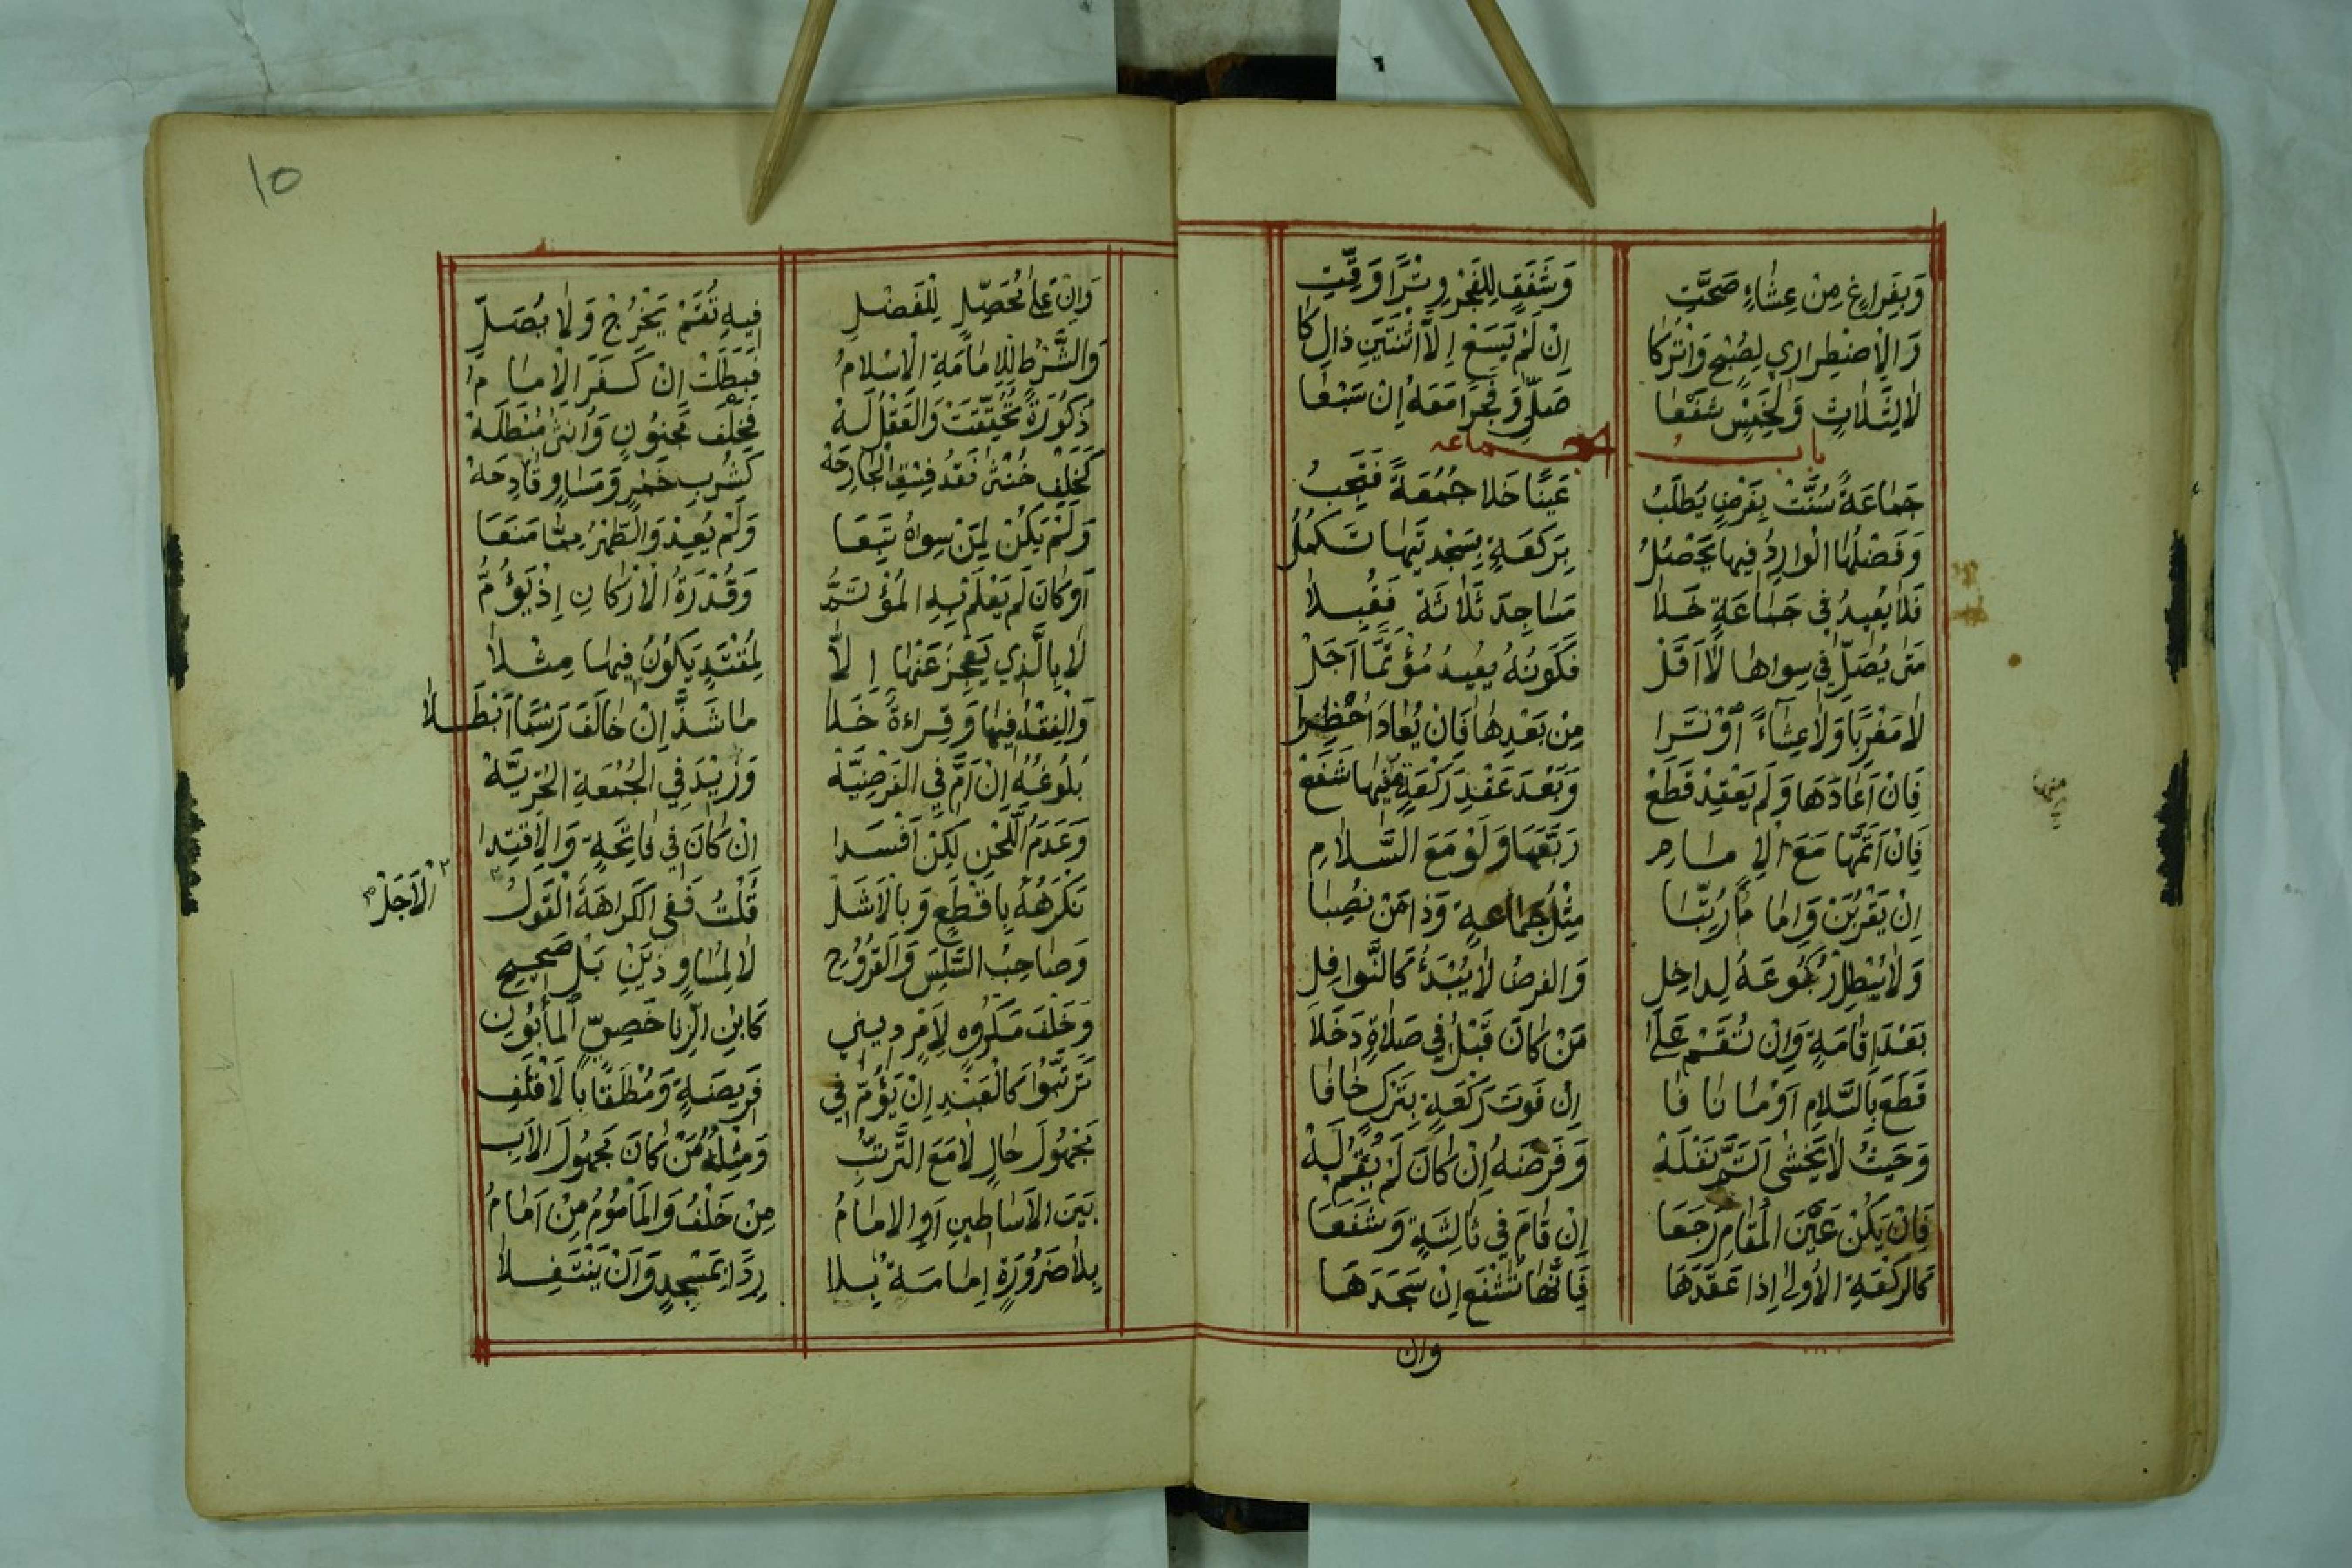 وَبِفَرَاغٍ مِنْ عِشَاءٍ صَحَّتِ وَشَفَقٍ لِلْفَجْرِ وِتْرًا وَقِّتِ
وَالِاضْطِرَارِي لِصُبْحٍ وَاتْرُكَا إِنْ لَمْ يَسَعْ إِلَّا اثْنَتَيْنِ ذَالِكَا
لَا لِثَلَاثٍ وَلِخَمْسٍ شَفْعَا صَلِّ وَفَجْرًا مَعَهُ إِنْ سَبْعَا
باب الجماعه
جَمَاعَةٌ سُنَّتْ بِفَرْضٍ يُطْلَبُ عَيْنًا خَلَا جُمُعَةً فَتَجِبُ
وَفَضْلُهَا الْوَارِدُ فِيهَا يَحْصُلُ بِرَكْعَةٍ بِسَجْدَتَيْهَا تَكْمُلُ
فَلَا يُعِيدُ فِي جَمَاعَةٍ خَلَا مَسَاجِدَ ثَلَاثَةً فَقِيلَا
مَتَى يُصَلِّ فِي سِوَاهَا لَا أَقَلْ فَكَوْنُهُ يُعِيدُ مُؤْتَمًّا أَجَلْ
لَا مَغْرِبًا وَلَا عِشَاءً أَوْتَرَا مِنْ بَعْدِهَا فَإِنْ يُعَادَ احْظِرَا
فَإِنْ أَعَادَهَا وَلَمْ يَعْقِدْ قَطَعْ وَبَعْدَ عَقْدِ رَكْعَةٍ فِيهَا شَفَعْ
فَإِنْ أَتَمَّهَا مَعَ الْإِمَامِ رَبَّعَهَا وَلَوْ مَعَ السَّلَامِ
إِنْ يَقْرُبَنْ وَإِمَامٌ رُتِّبَا مِثْلُ جَمَاعَةٍ وَذَا مَنْ نُصِبَا
وَلَا يُبْطِلْ رُكُوعَهُ لِدَاخِلِ وَالفرضُ لَا يُبْدَأُ كَالنَّوَافِلِ
بَعْدَ إِقَامَةٍ وَإِنْ تُقَمْ عَلَى مَنْ كَانَ قَبْلُ فِي صَلَاةٍ دَخَلَا
قَطَعَ بِالسَّلَامِ أَوْ مَا نَافَا إِنْ فَوْتَ رَكْعَةٍ بِتَرْكٍ خَافَا
وَحَيْثُ لَا يَخْشَى أَتَمَّ نَفْلَهْ وَفَرْضَهُ إِنْ كَانَ لَمْ يُقَمْ لَهْ
فَإِنْ يَكُنْ عَيْنَ الْمُقَامِ رَجَعَا إِنْ قَامَ فِي ثَالِثَةٍ وَشَفَعَا
كَالرَّكْعَةِ الْأُولَى إِذَا عَقَدَهَا فَإِنَّهَا تُشْفَعُ إِنْ سَجَدَهَا
وان
١٥
وَإِنْ عَلَى مُحَصِّلٍ لِلْفَضْلِ فِيهِ تُقَمْ يَخْرُجْ وَلَا يُصَلِّ
وَالشَّرْطُ لِلْإِمَامَةِ الْإِسْلَامُ فَبَطَلَتْ إِنْ كَفَرَ الْإِمَامُ
ذُكُورَةٌ تَحَقَّقَتْ وَالْعَقْلُ لَهْ فَخَلْفَ مَجْنُونٍ وَأُنْثَى مُبْطَلَهْ
كَخَلْفِ خُنْثَى فَقْدُ فِسْقِ الْجَارِحَهْ كَشُرْبِ خَمْرٍ وَمَسَاوٍ قَادِحَهْ
وَلَمْ يَكُنْ لِمَنْ سِوَاهُ تَبَعَا وَلَمْ يُعِدْ وَالطُّهْرُ مِمَّا مَنَعَا
أَوْ كَانَ لَمْ يَعْلَمْ بِهِ الْمُؤْتَمُّ وَقُدْرَةُ الْأَرْكَانِ إِذْ يَؤُمُّ
لَا بِالَّذِي يَعْجِزُ عَنْهَا إِلَّا لِمُقْتَدٍ يَكُونُ فِيهَا مِثْلَا
وَالْفِقْهُ فِيهَا وَقِرَاءَةٌ خَلَا مَا شَذَّ إِنْ خَالَفَ رَسْمًا أَبْطَلَا
بُلُوغُهُ إِنْ أَمَّ فِي الفَرْضِيَّهْ وَزِيدَ فِي الْجُمْعَةِ الْحُرِّيَّهْ
وَعَدَمُ اللَّحْنِ لَكِنْ أَفْسَدَا إِنْ كَانَ فِي فَاتِحَةٍ وَالِاقْتِدَا
تَكْرَهُهُ بِأَقْطَعٍ وَبِالْأَشَلْ قُلْتُ فَفِي الكَرَاهَةِ الْقَوْلُ
الْأَجَلْ
وَصَاحِبُ السَّلَسِ وَالْقُرُوحِ لَا لِمُسَاوٍ ذَيْنِ بَلْ صَحِيحِ
وَخَلْفَ مَكْرُوهٍ لِأَمْرٍ دِينِي كَابْنِ الزِّنَا خَصِيٍّ الْمَأْبُونِ
تَرَتَّبُوا كَالْعَبْدِ إِنْ يَؤُمَّ فِي فَرِيضَةٍ وَمُطْلَقًا بِالْأَقْلَفِ
مَجْهُولَ حَالٍ لَا مَعَ التَّرَتُّبِ وَمِثْلُهُ مَنْ كَانَ مَجْهُولَ الأَبِ
بَيْنَ الْأَسَاطِينِ أَوِ الْإِمَامُ مِنْ خَلْفُ وَالْمَأْمُومُ مِنْ أَمَامُ
بِلَا ضَرُورَةٍ إِمَامَةٌ بِلَا رِدًا بِمَسْجِدٍ وَأَنْ يَنْتَفِلَا